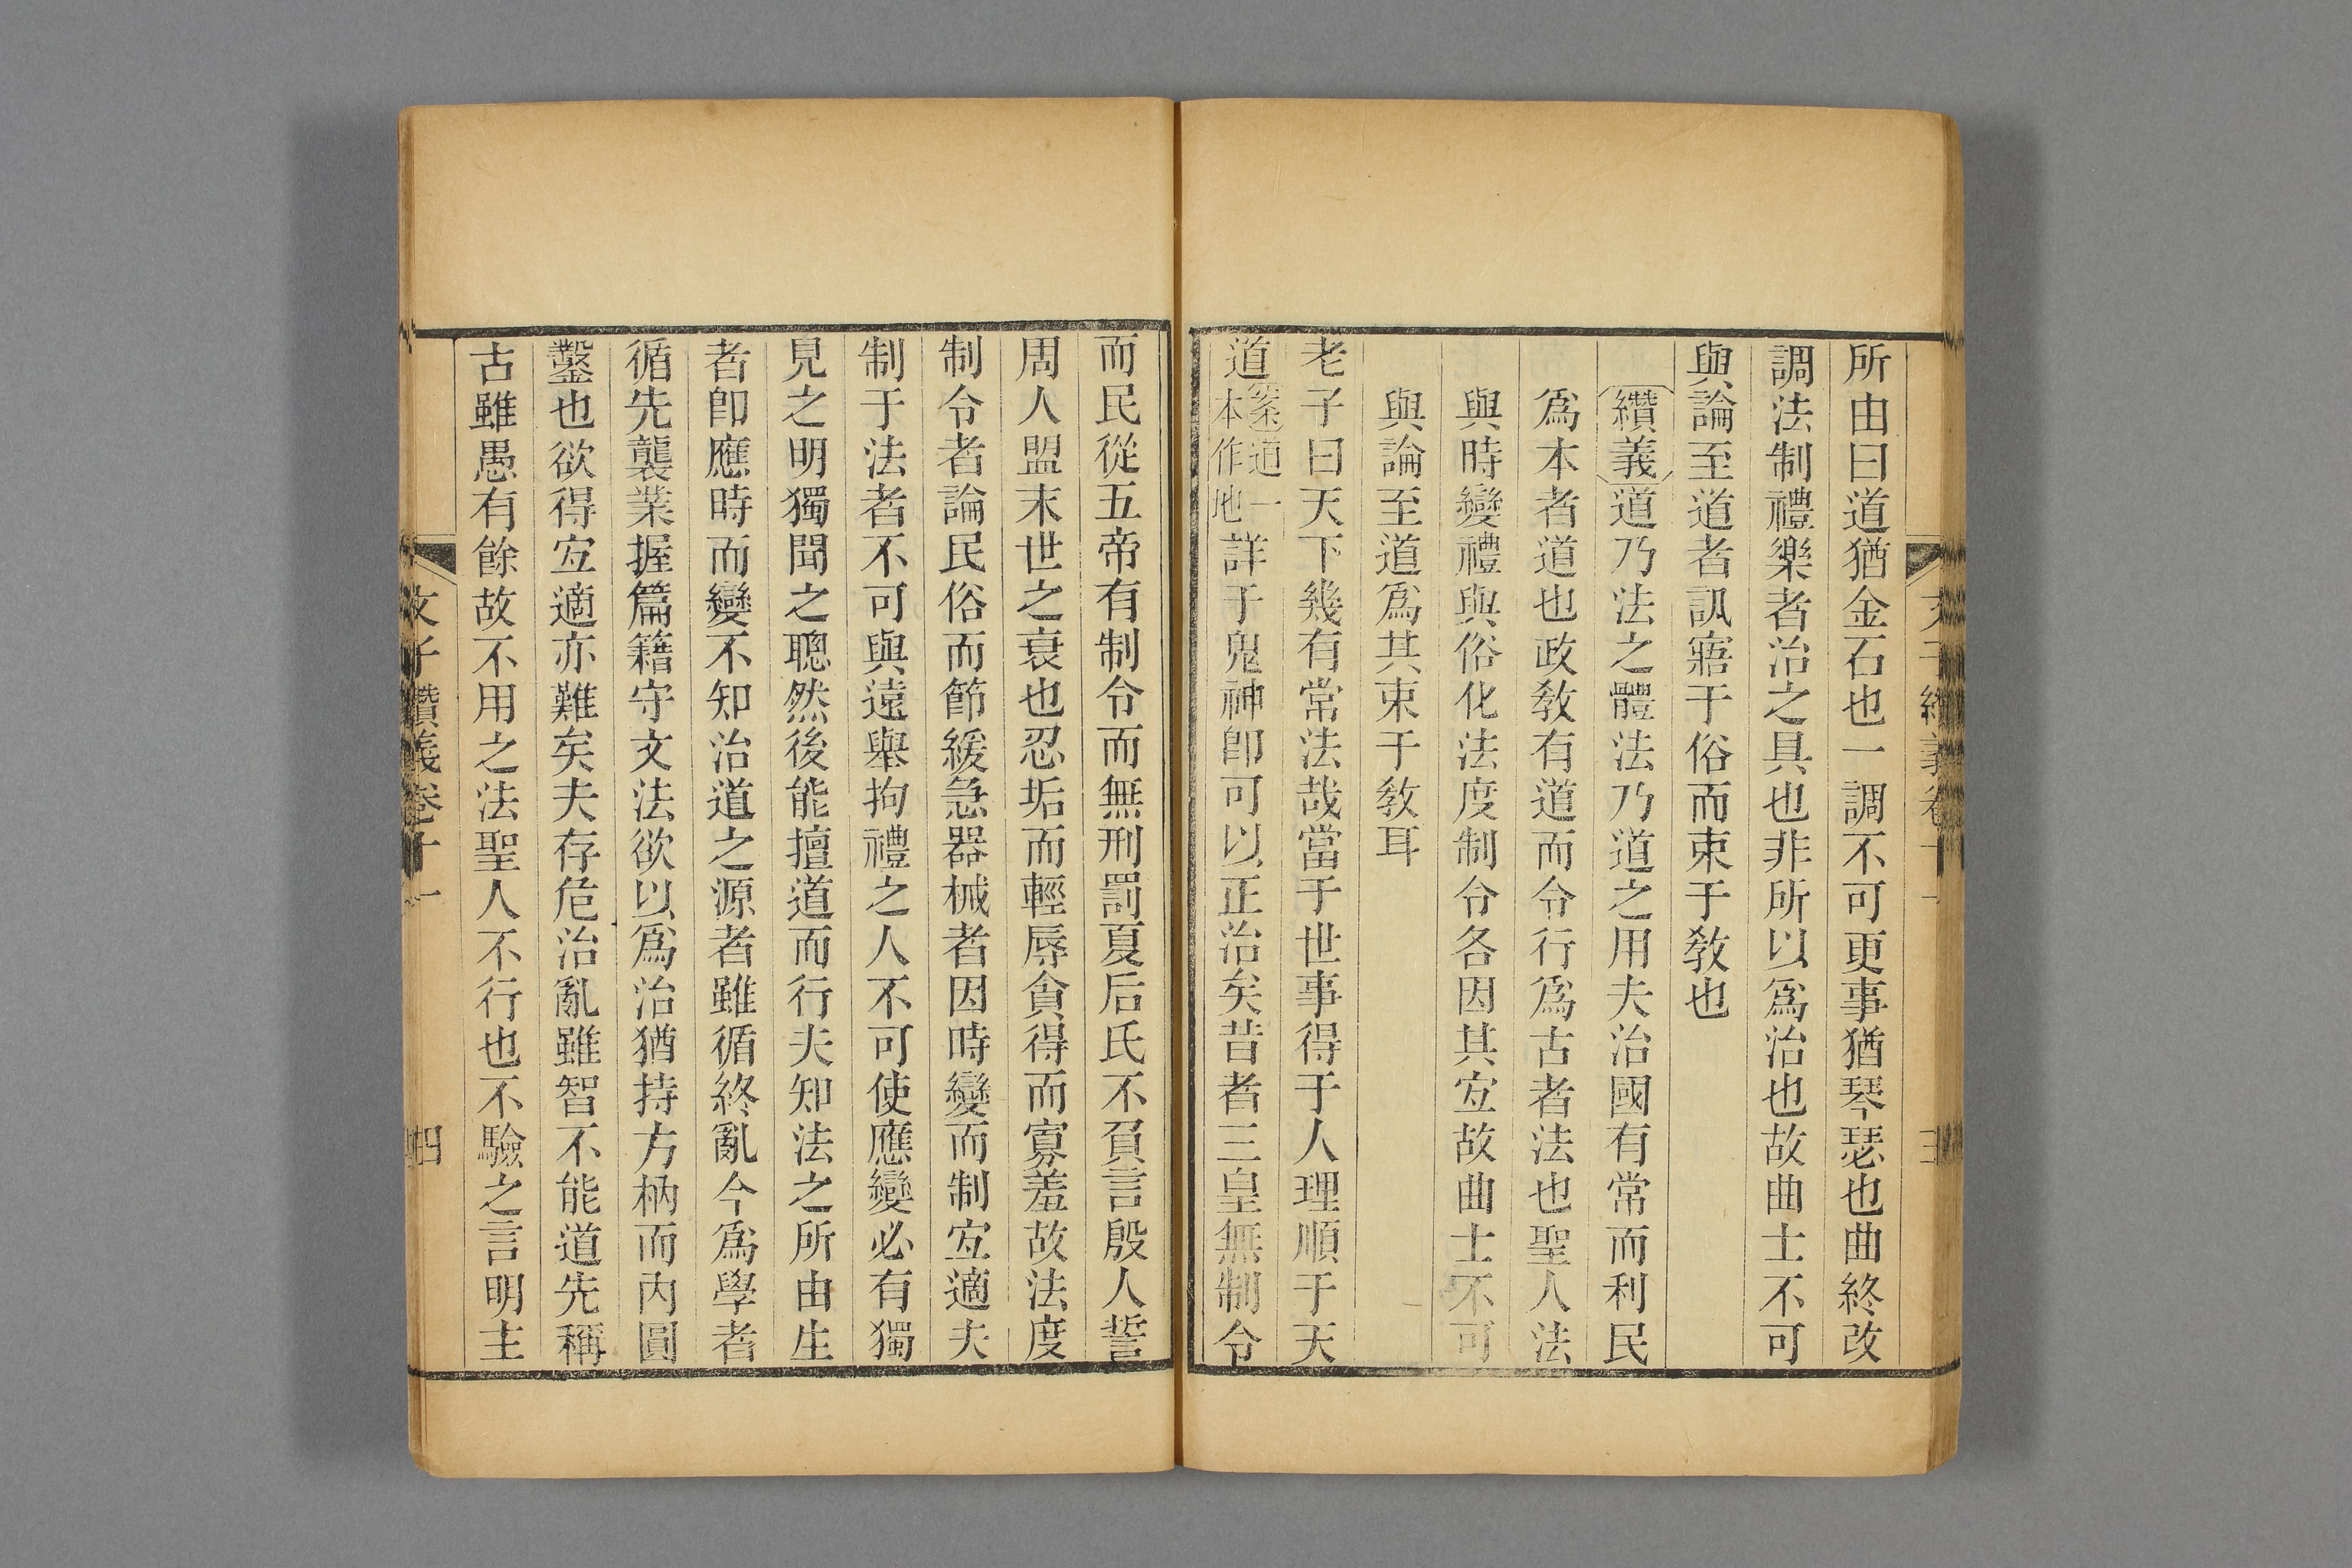 文子纘義卷十一
三
所由曰道猶金石也一調不可更事猶琴瑟也曲終改
調法制禮樂者治之具也非所以爲治也故曲士不可
與論至道者訊寤于俗而束于敎也
纘義道乃法之體法乃道之用夫治國有常而利民
爲本者道也政敎有道而令行爲古者法也聖人法
與時變禮與俗化法度制令各因其宐故曲士不可
與論至道爲其束于敎耳
老子曰天下幾有常法哉當于世事得于人理順于天
道案道一本作地詳于鬼神卽可以正治矣昔者三皇無制令
而民從五帝有制令而無刑罰夏后氏不負言殷人誓
周人盟末世之衰也忍垢而輕辱貪得而寡羞故法度
制令者論民俗而節緩急器械者因時變而制宐適夫
制于法者不可與遠舉拘禮之人不可使應變必有獨
見之明獨聞之聰然後能擅道而行夫知法之所由生
者卽應時而變不知治道之源者雖循終亂今爲學者
循先襲業握篇籍守文法欲以爲治猶持方枘而內圓
鑿也欲得宐適亦難矣夫存危治亂雖智不能道先稱
古雖愚有餘故不用之法聖人不行也不驗之言明主
文子纘義卷十一
四